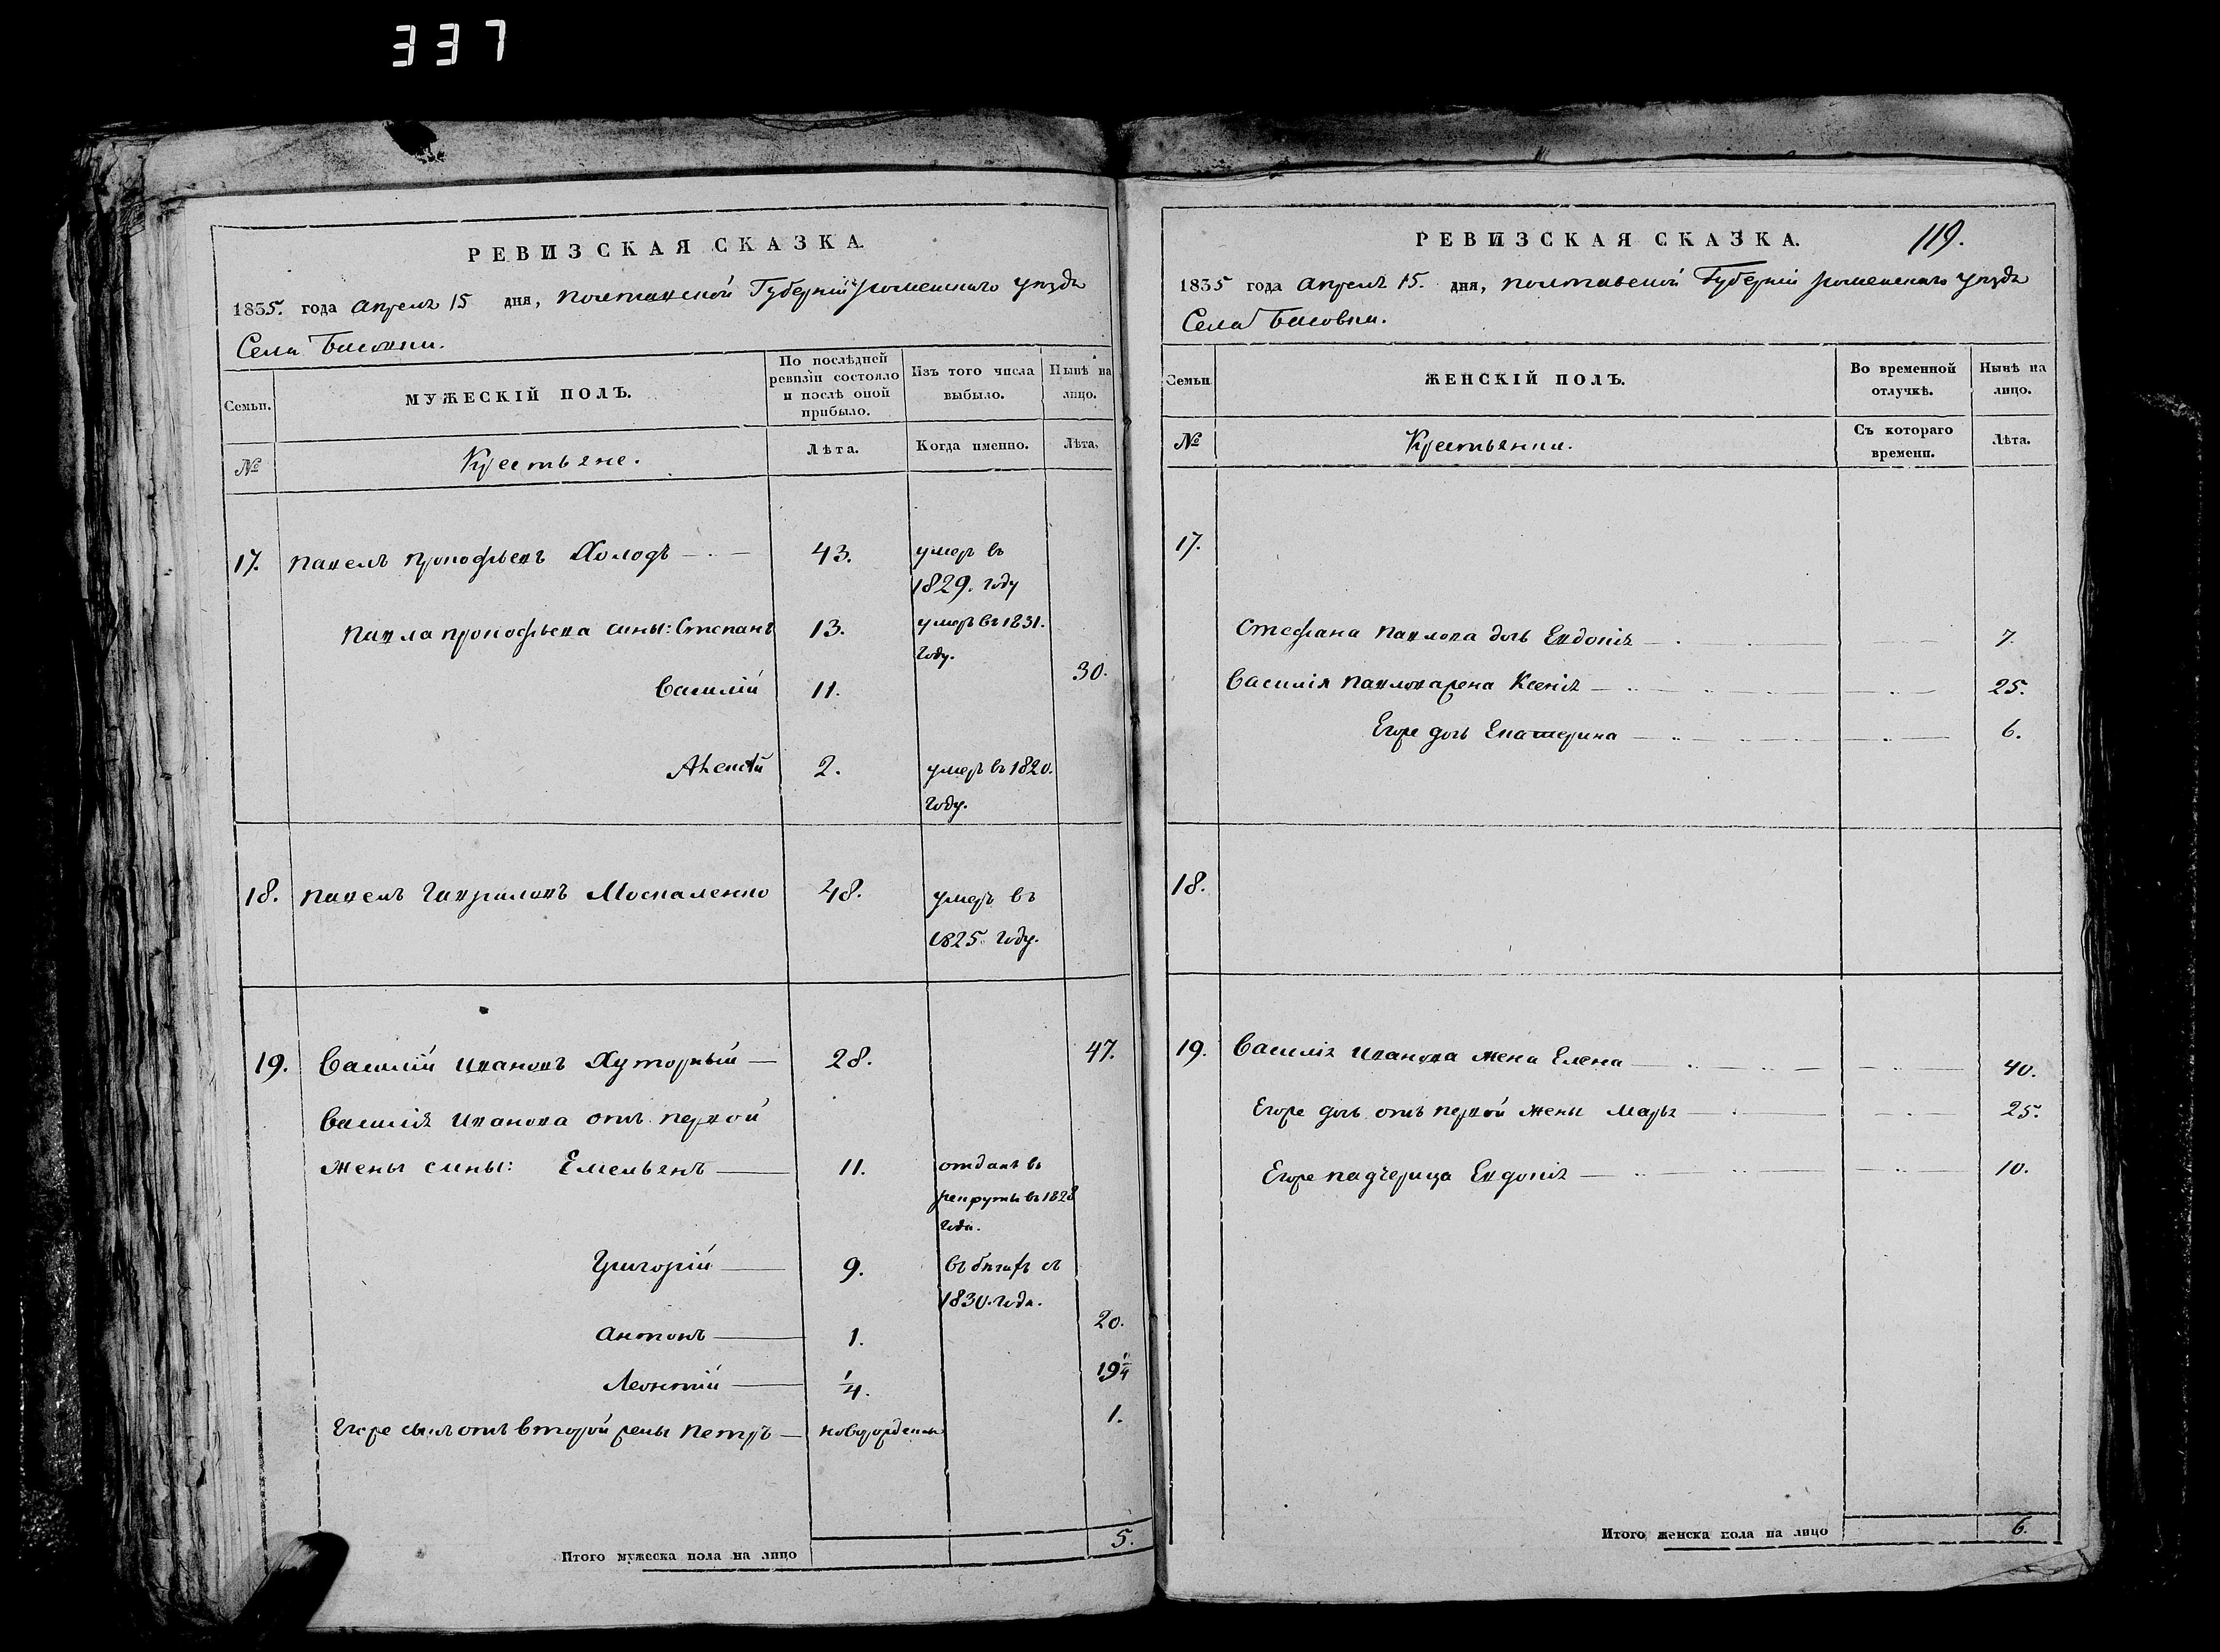 337
РЕВИЗСКАЯ СКАЗКА.
1835. года Апреля 15 дня, Полтавской Губернии Роменскаго уезда
Села Басовки.
Семьи.
МУЖЕСКІЙ ПОЛЪ.
По послѣдней ревизіи состояло и послѣ оной прибыло.
Изъ того числа выбыло.
Нынѣ на лицо.
№
Крестьяне.
Лѣта.
Когда именно.
Лѣта.
17. Павелъ Прокофьевъ Холодъ 43. умеръ въ
1829. году
Павла Прокофьева сины: Степанъ 13. умеръ въ 1831.
году.
Василій 11. 30.
Алексѣй 2. умеръ въ 1820.
году.
18. Павелъ Гавриловъ Москаленко 48. умеръ въ
1825. году.
19. Василій Ивановъ Хуторный 28. 47.
Василія Иванова отъ первой
жены сины: Емельянъ 11. отданъ въ
рекруты въ 1828
года.
Григорій 9. въ бегахъ съ
1830. года.
Антонъ 1. 20.
Леонтій 1/4. 19 1/4
Егоре сынъ отъ второй жены Петръ 1.
Итого мужеска пола на лицо 5.
РЕВИЗСКАЯ СКАЗКА. 119.
1835 года Апреля 15. дня, Полтавской Губерніи Роменскаго уезда
Села Басовки.
Семьи
ЖЕНСКІЙ ПОЛЪ.
Во временной отлучкѣ.
Нынѣ на лицо.
№
Крестьянки.
Съ котораго времени.
Лѣта.
17.
Стефана Павлова дочь Евдокія 7.
Василія Павлова жена Ксенія 25.
Егоре дочь Екатерина 6.
18.
19. Василія Иванова жена Елена 40.
Егоре дочь отъ первой жены Марья 25.
Егоре падчерица Евдокія 10.
Итого женска пола на лицо 6.